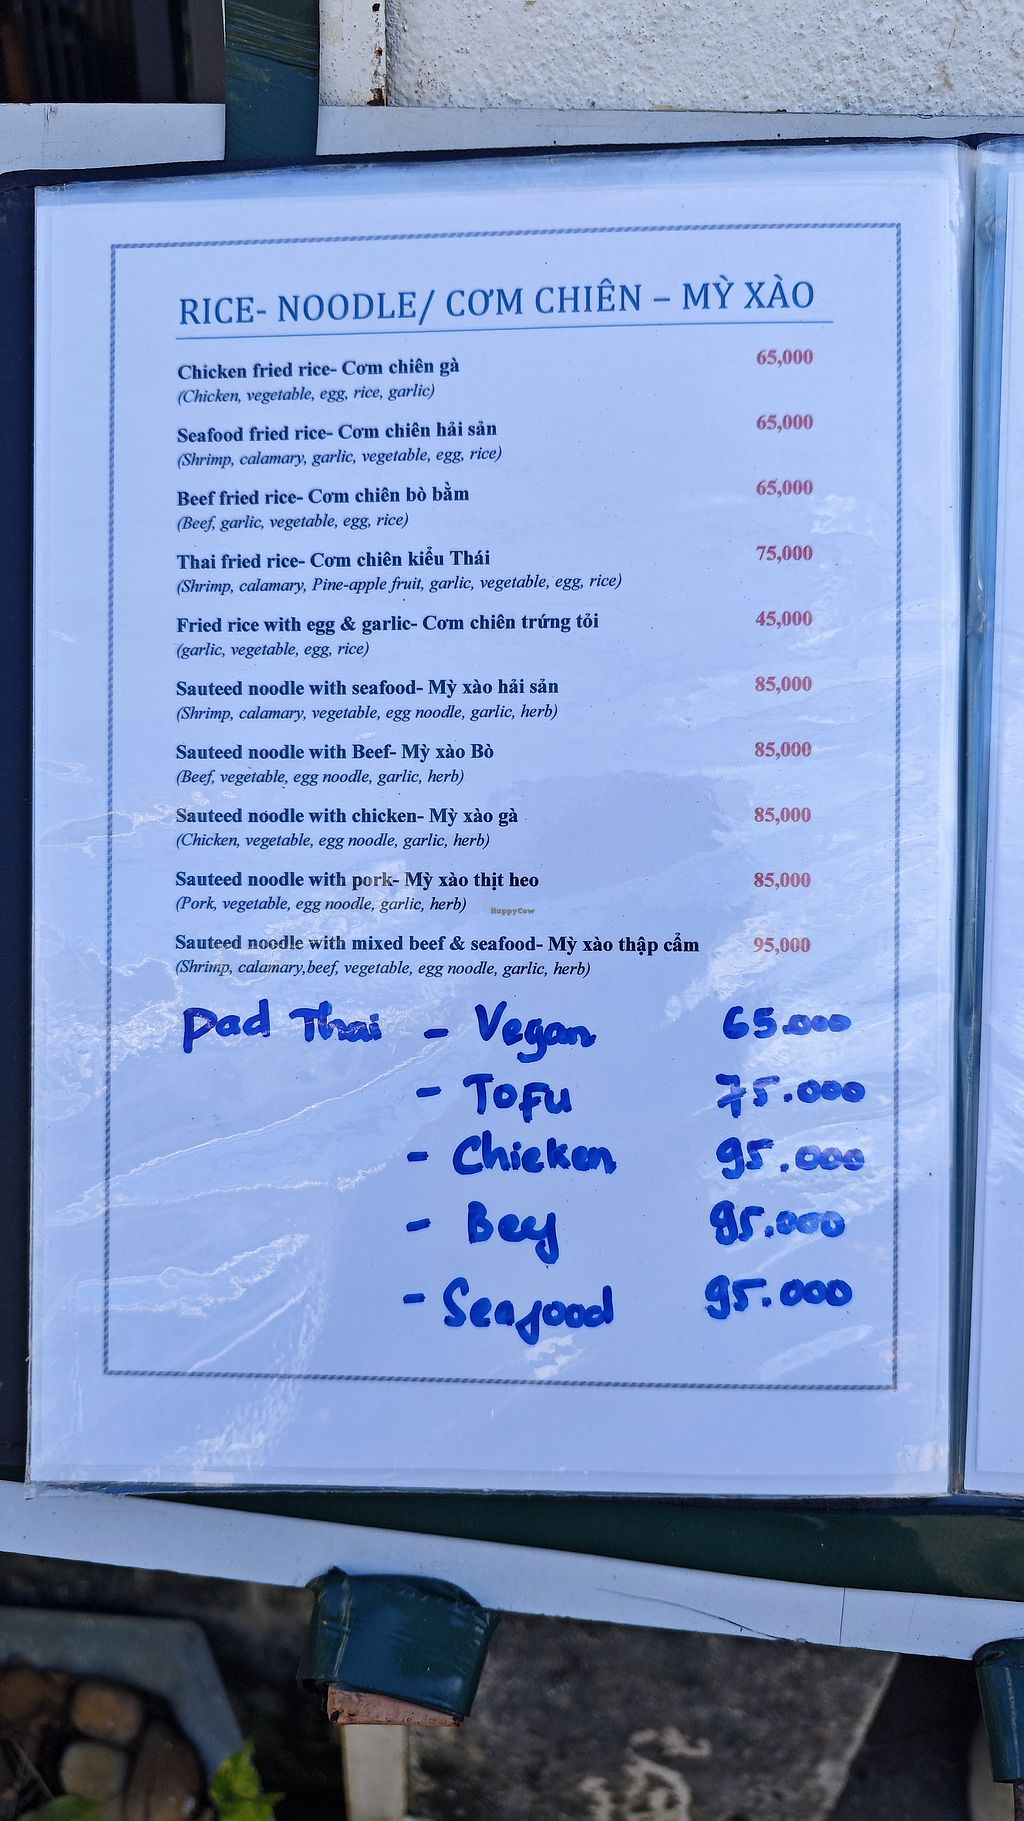 RICE- NOODLE/ CƠM CHIÊN – MỲ XÀO
Chicken fried rice- Cơm chiên gà 65,000
(Chicken, vegetable, egg, rice, garlic)
Seafood fried rice- Cơm chiên hải sản 65,000
(Shrimp, calamary, garlic, vegetable, egg, rice)
Beef fried rice- Cơm chiên bò bằm 65,000
(Beef, garlic, vegetable, egg, rice)
Thai fried rice- Cơm chiên kiểu Thái 75,000
(Shrimp, calamary, Pine-apple fruit, garlic, vegetable, egg, rice)
Fried rice with egg & garlic- Cơm chiên trứng tỏi 45,000
(garlic, vegetable, egg, rice)
Sauteed noodle with seafood- Mỳ xào hải sản 85,000
(Shrimp, calamary, vegetable, egg noodle, garlic, herb)
Sauteed noodle with Beef- Mỳ xào Bò 85,000
(Beef, vegetable, egg noodle, garlic, herb)
Sauteed noodle with chicken- Mỳ xào gà 85,000
(Chicken, vegetable, egg noodle, garlic, herb)
Sauteed noodle with pork- Mỳ xào thịt heo 85,000
(Pork, vegetable, egg noodle, garlic, herb)
HappyCow
Sauteed noodle with mixed beef & seafood- Mỳ xào thập cẩm 95,000
(Shrimp, calamary,beef, vegetable, egg noodle, garlic, herb)
Pad Thai - Vegan 65.000
- Tofu 75.000
- Chicken 95.000
- Beef 95.000
- Seafood 95.000